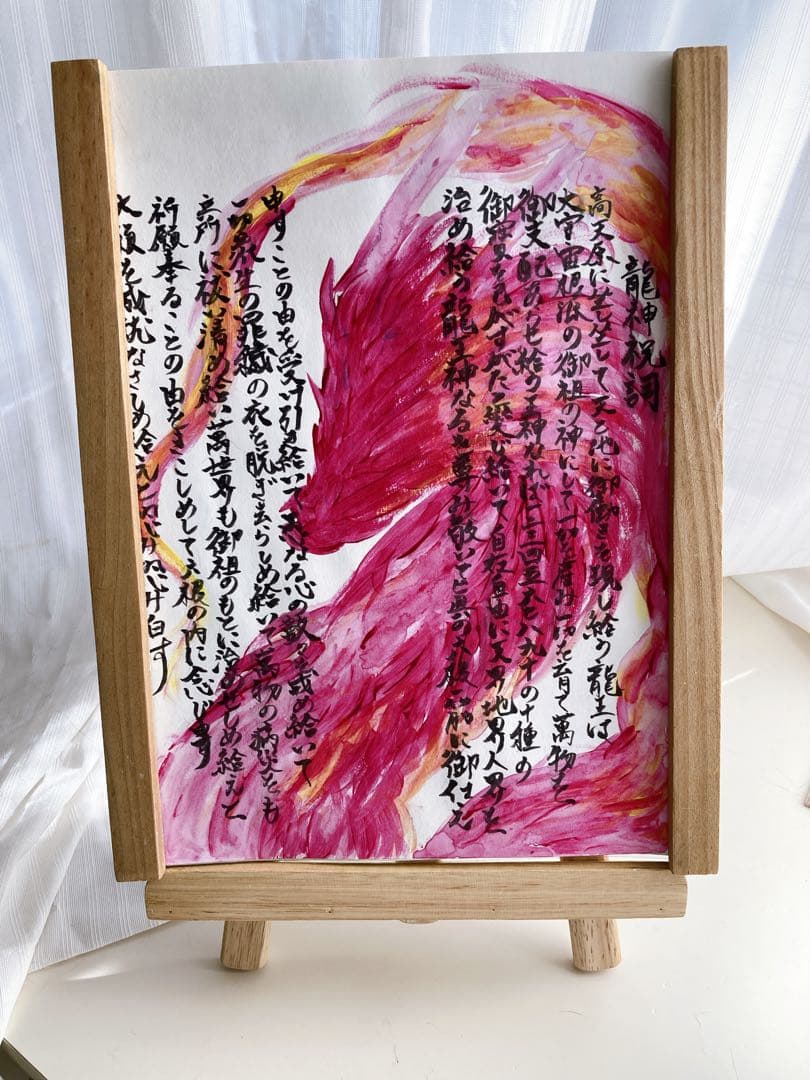 龍神祝詞
高天原に坐し坐して天と地に御働きを現し給う龍王は
大宇宙根源の御祖の神にして一切を産み一切を育て萬物を
御支配あらせ給う王神なれば一二三四五六七八九十の十種の
御寶を己がすがたと変じ給いて自在自由に天界地界人界を
治め給う龍王神なるを尊み敬いて眞の六根一筋に御仕え
申すことの由を受け引き給いて愚なる心の数々を戒め給いて
一切衆生の罪穢の衣を脱ぎ去らしめ給いて萬物の病災をも
立所に祓い清め給い萬世界も御祖のもとに治めせしめ給えと
祈願奉ることの由をきこしめして六根の内に念じ申す
大願を成就なさしめ給えと
白す